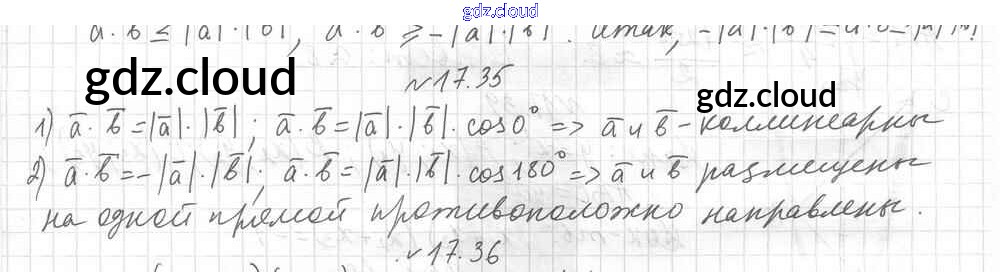 gdz.cloud
a̅ · b̅ ≤ |a̅| · |b̅|, a̅ · b̅ ≥ -|a̅| · |b̅|. Итак,
gdz.cloud
№17.35
gdz.cloud
1) a̅ · b̅ = |a̅| · |b̅|; a̅ · b̅ = |a̅| · |b̅| · cos0° => a̅ и b̅ - коллинеарны
2) a̅ · b̅ = -|a̅| · |b̅|; a̅ · b̅ = |a̅| · |b̅| · cos180° => a̅ и b̅ размещены
на одной прямой противоположно направлены.
№17.36